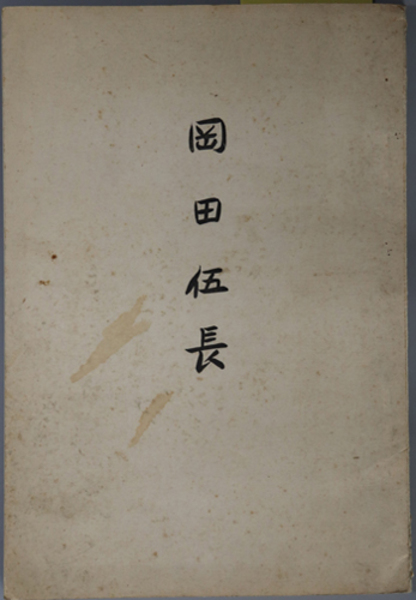 岡田伍長